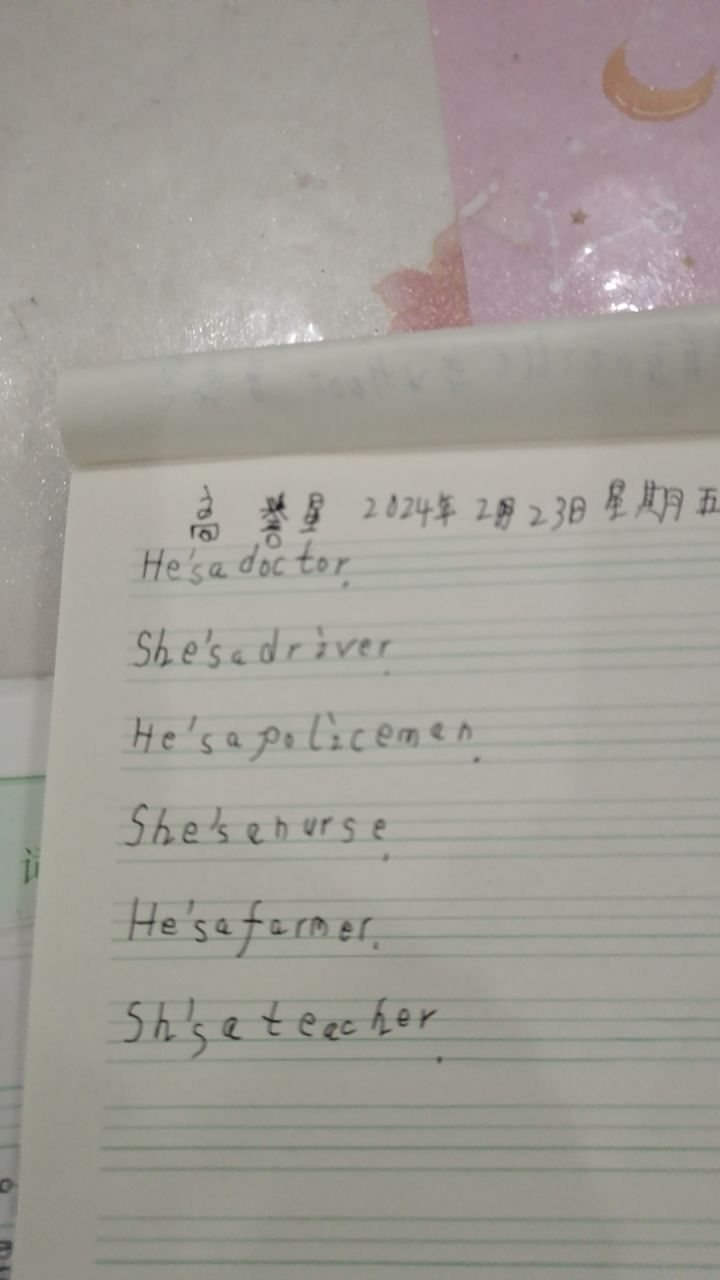 高 誉星 2024年2月23日 星期五
He's a doctor.
She's a driver.
He's a policeman.
She's a nurse.
He's a farmer.
Sh's a teacher.